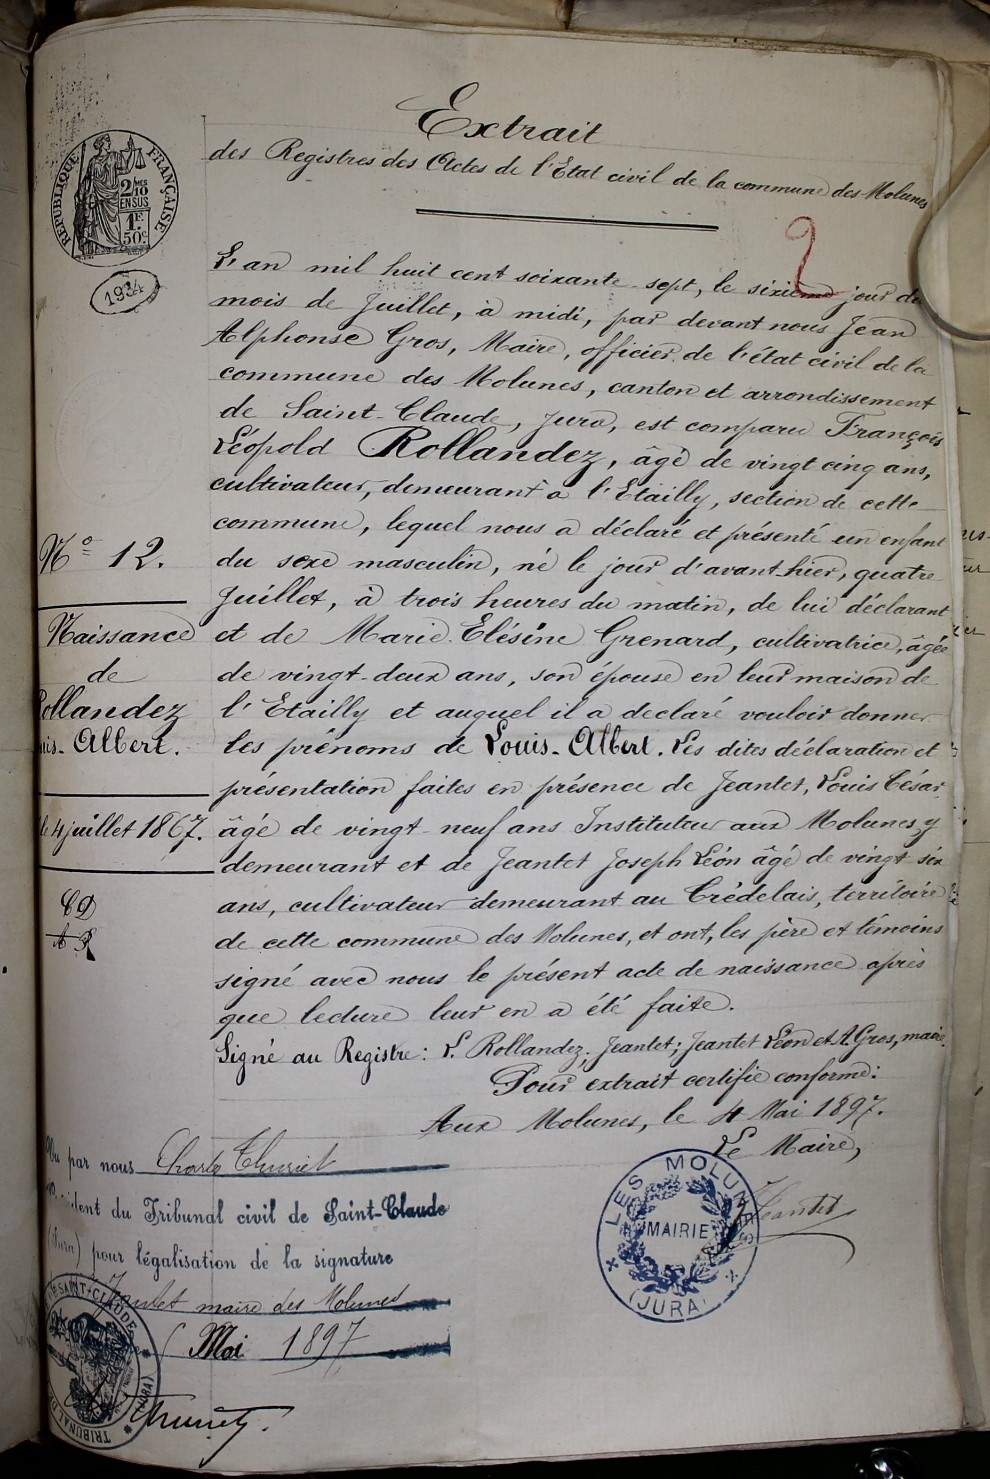 Extrait
des Registres des Actes de l'Etat civil de la commune des Molunes
RÉPUBLIQUE FRANÇAISE
2/10 MES
EN SUS
1F.
50c
1934
2
L'an mil huit cent soixante-sept, le sixième jour du
mois de Juillet, à midi, par devant nous Jean
Alphonse Gros, Maire, officier de l'état civil de la
commune des Molunes, canton et arrondissement
de Saint-Claude, Jura, est comparu François
Léopold Rollandez, âgé de vingt cinq ans,
cultivateur, demeurant à l'Etailly, section de cette
commune, lequel nous a déclaré et présenté un enfant
du sexe masculin, né le jour d'avant-hier, quatre
Juillet, à trois heures du matin, de lui déclarant
et de Marie Elésine Grenard, cultivatrice, âgée
de vingt-deux ans, son épouse en leur maison de
l'Etailly et auquel il a declaré vouloir donner
les prénoms de Louis-Albert. Les dites déclaration et
présentation faites en présence de Jeantet, Louis César
âgé de vingt-neuf ans Instituteur aux Molunes y
demeurant et de Jeantet Joseph Léon âgé de vingt-six
ans, cultivateur demeurant au Crédelais, territoire
de cette commune des Molunes, et ont, les père et témoins
signé avec nous le présent acte de naissance après
que lecture leur en a été faite.
Signé au Registre: L. Rollandez; Jeantet; Jeantet Léon et A. Gros, maire.
Pour extrait certifié conforme:
Aux Molunes, le 4 Mai 1897.
Le Maire,
Jeantet
LES MOLUNES
MAIRIE
(JURA)
No 12.
Naissance
de
Rollandez
uis-Albert.
le 4 juillet 1867.
Vu par nous Charles Thuriet
Président du Tribunal civil de Saint-Claude
(Jura) pour légalisation de la signature
Jeantet maire des Molunes
Mai 1897
SAINT-CLAUDE
(JURA)
TRIBUNAL DE
Thuriet